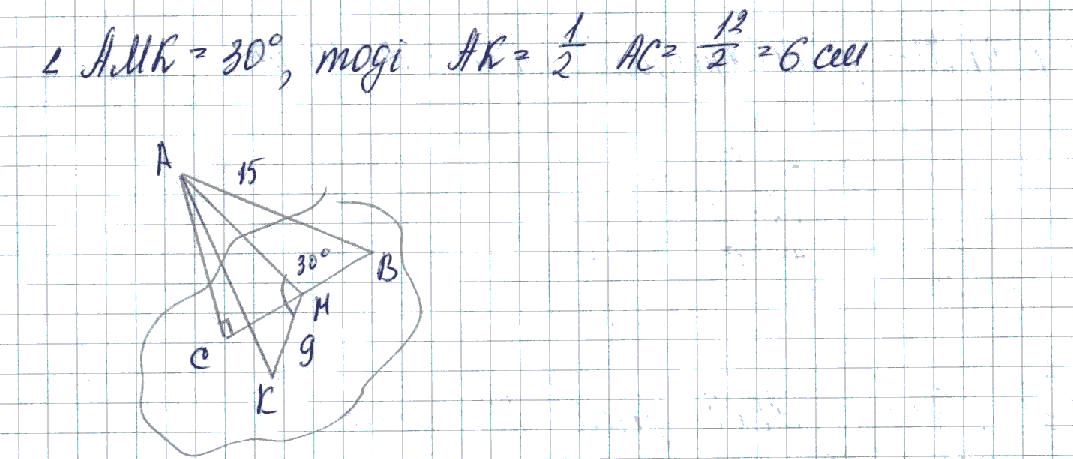 ∠ AMK = 30°, тоді AK = 1/2 AC = 12/2 = 6 см
A
15
30°
B
M
C
9
K